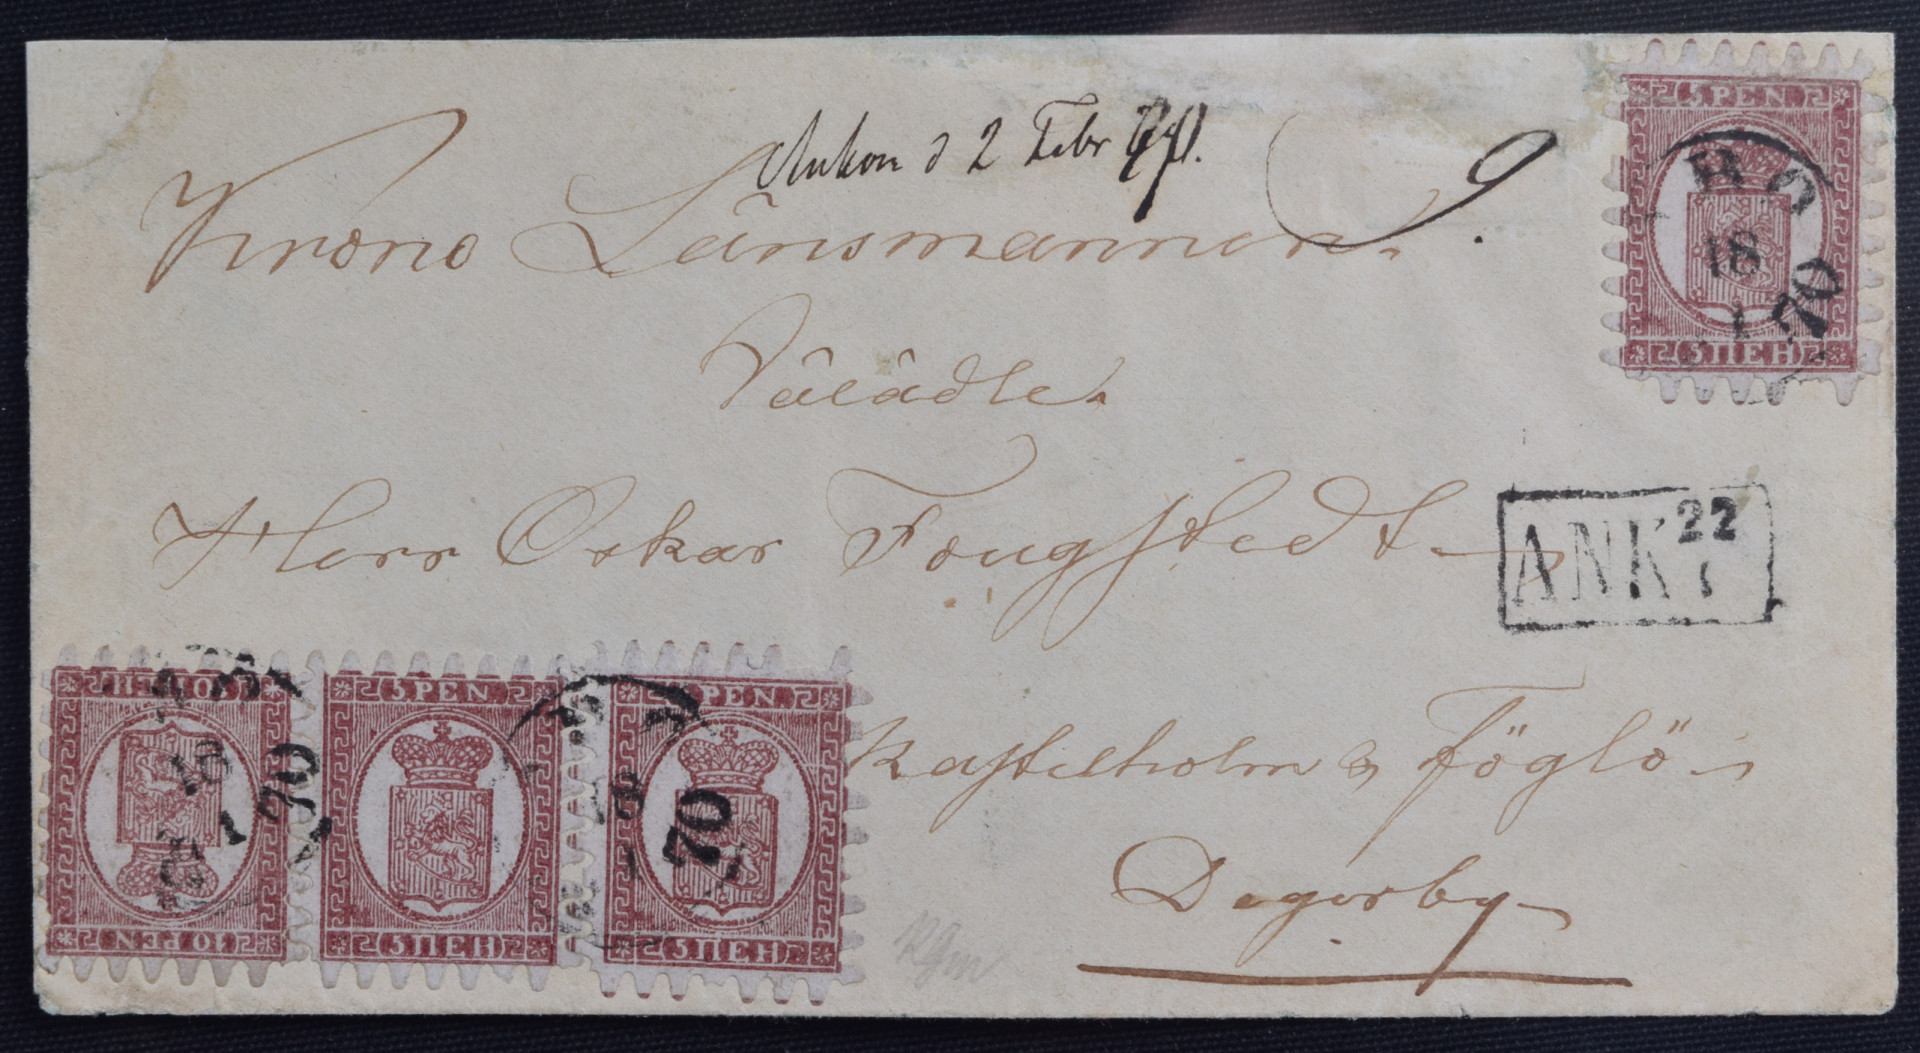 d 2 Febr
9.
Krono Länsmannen
Välädle
Herr Oskar Fougstedt
Kastelholm & Föglö
Degerby
5 PEN.
18
1
70
5 ПЕН
ANK 22
1
10 PEN
18
1
70
10 ПЕН
5 PEN
5 ПЕН
5 PEN.
18
1
70
5 ПЕН